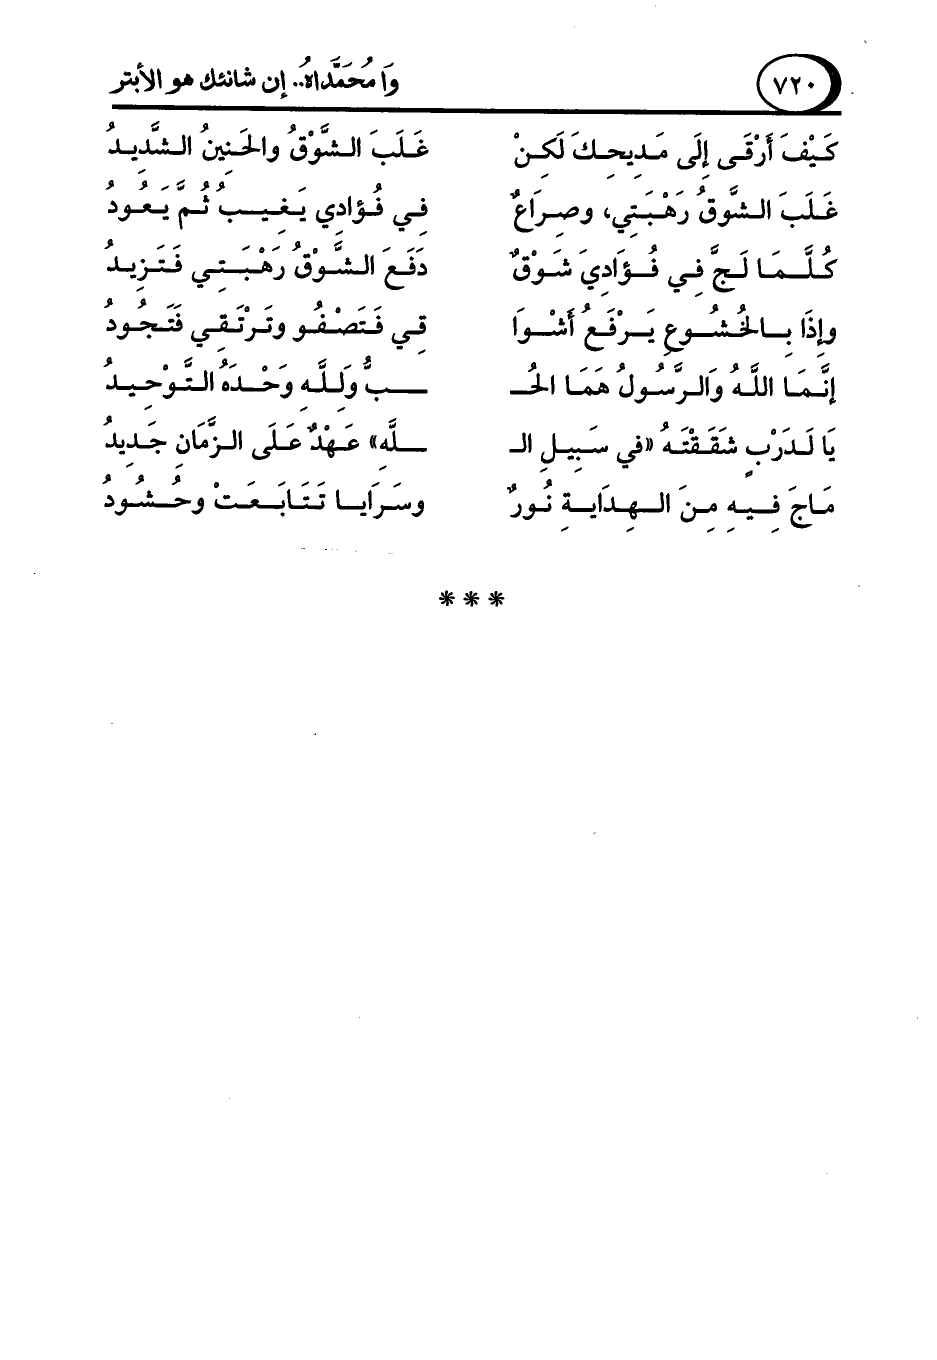 ٧٢٠ وَا مُحَمَّدَاهُ.. إن شانئك هو الأبتر
كَيْفَ أَرْقَى إِلَى مَدِيحِكَ لَكِنْ غَلَبَ الشَّوْقُ والحَنِينُ الشَّدِيدُ
غَلَبَ الشَّوقُ رَهْبَتِي، وصِرَاعٌ فِي فُؤادِي يَغِيبُ ثُمَّ يَعُودُ
كُلَّمَا لَجَّ فِي فُؤَادِيَ شَوْقٌ دَفَعَ الشَّوْقُ رَهْبَتِي فَتَزِيدُ
وإِذَا بالخُشُوعِ يَرْفَعُ أَشْوَا قِي فَتَصْفُو وتَرْتَقِي فَتَجُودُ
إِنَّمَا اللَّهُ وَالرَّسُولُ هُمَا الحُـ ـبُّ وَلِلَّهِ وَحْدَهُ التَّوْحِيدُ
يَا لَدَرْبٍ شَقَقْتَهُ «في سَبِيلِ الـ ـلَّهِ» عَهْدٌ عَلَى الزَّمَانِ جَدِيدُ
مَاجَ فِيهِ مِنَ الهِدَايةِ نُورٌ وسَرَايا تَتَابَعَتْ وحُشُودُ
* * *